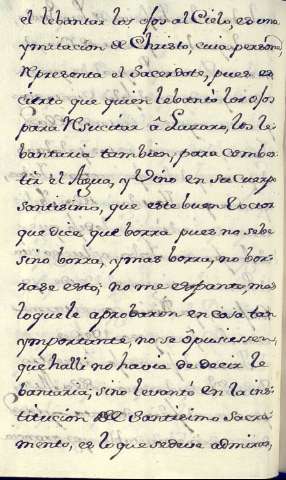 el lebantar los ojos al Cielo, es una
ymitacion de Christo, cuia persona,
representa el Sacerdote, pues es
cierto que quien lebantó los ojos
para Resucitar â Lazaro, los le-
bantaria tambien, para comber-
tir el Agua, y Vino en su Cuerpo
santisimo, que este buen Doctor
que dice que borra pues no sabe
sino borra, y mas borra, no bor-
rase esto; no me espanto, mas
lo que le aprobaron en casa tan
ymportante, no se ôpusiessen,
que halli no havia de decir le
bantaria, sino levantó en la ins
titucion del Santisimo Sacra
mento, es lo que se deve admirar,